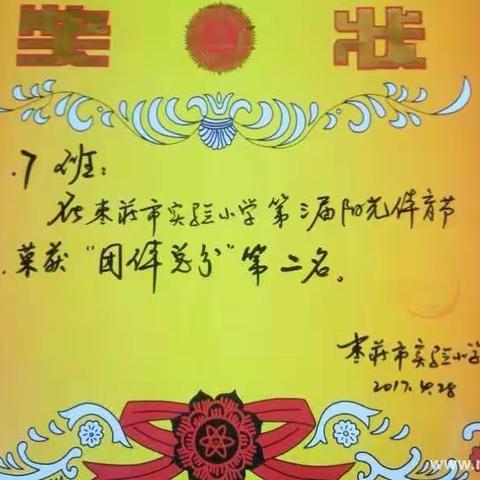 奖 状
.7班：
在枣庄市实验小学第三届阳光体育节
荣获“团体总分”第二名。
枣庄市实验小学
2017.4.28
www.